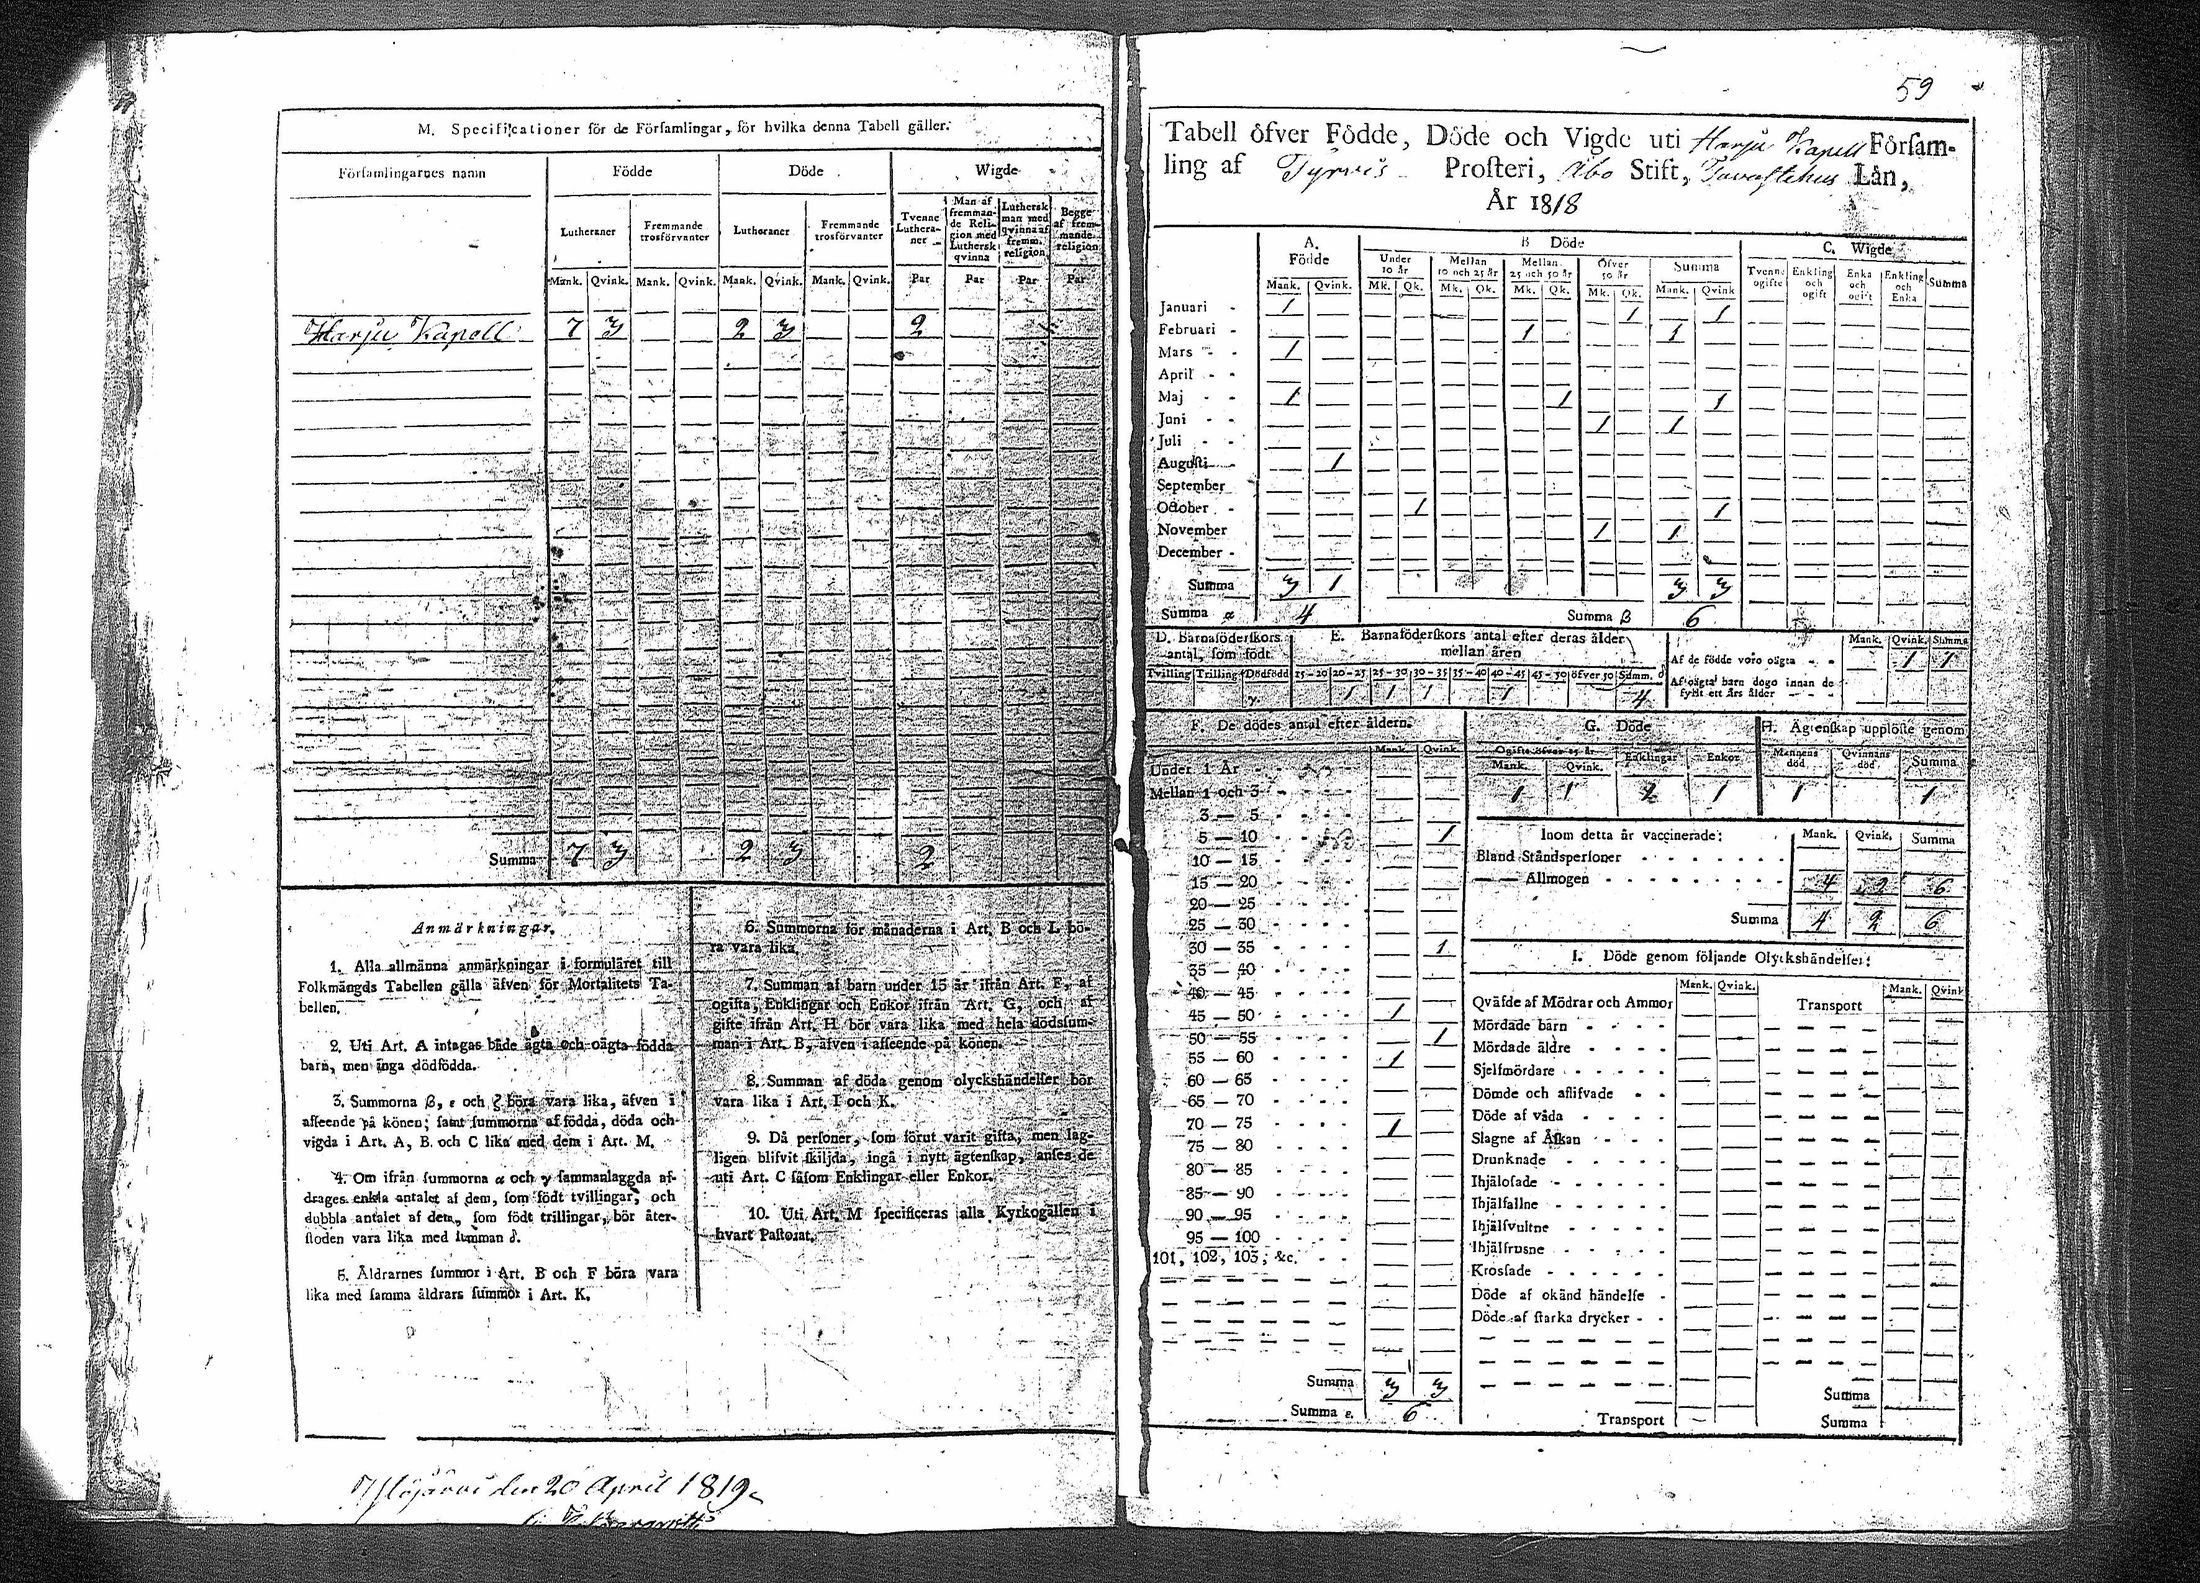 M. Specificationer för de Församlingar, för hvilka denna Tabell gäller.
Församlingarnes namn Födde Döde Wigde
Lutheraner Fremmande trosförvanter Lutheraner Fremmande trosförvanter Tvenne Lutheraner Man af fremmande Religion med Luthersk qvinna Luthersk man med qvinna af fremm. religion Begge af fremmande religion
Mank. Qvink. Mank. Qvink. Mank. Qvink. Mank. Qvink. Par Par Par Par
Harju Kapell 7 3 2 3 2
Summa 7 3 2 3 2
Anmärkningar.
1. Alla allmänna anmärkningar i formuläret till
Folkmängds Tabellen gälla äfven för Mortalitets Ta-
bellen.
2. Uti Art. A intagas både ägta och oägta födda
barn, men inga dödfödda.
3. Summorna β, ε och ζ böra vara lika, äfven i
afseende på könen; samt summorna af födda, döda och
vigda i Art. A, B. och C lika med dem i Art. M.
4. Om ifrån summorna α och γ sammanlaggda af-
drages enkla antalet af dem, som födt tvillingar, och
dubbla antalet af dem, som födt trillingar, bör åter-
stoden vara lika med summan δ.
5. Åldrarnes summor i Art. B och F böra vara
lika med samma åldrars summor i Art. K.
6. Summorna för månaderna i Art. B och L bö-
ra vara lika.
7. Summan af barn under 15 år ifrån Art. F, af
ogifta, Enklingar och Enkor ifrån Art. G, och af
gifte ifrån Art. H bör vara lika med hela dödssum-
man i Art. B, äfven i afseende på könen.
8. Summan af döda genom olyckshändelser bör
vara lika i Art. I och K.
9. Då personer, som förut varit gifta, men lag-
ligen blifvit skiljda, ingå i nytt ägtenskap, anses de
uti Art. C såsom Enklingar eller Enkor.
10. Uti Art. M specificeras alla Kyrkogällen i
hvart Pastorat.
den 20 April 1819
59
Tabell öfver Födde, Döde och Vigde uti Harju Kapell Församling
af Tyrvis Prosteri, Åbo Stift, Tavastehus Län,
År 1818
A. Födde B Döde C. Wigde
Under 10 år Mellan 10 och 25 år Mellan 25 och 50 år Öfver 50 år Summa Tvenne ogifte Enkling och ogift Enka och ogift Enkling och Enka Summa
Mank. Qvink. Mk. Qk. Mk. Qk. Mk. Qk. Mk. Qk. Mank. Qvink
Januari 1 1 1
Februari 1 1
Mars 1
April
Maj 1 1 1
Juni 1 1
Juli
Augusti 1
September
October 1 1
November 1 1
December
Summa 3 1 3 3
Summa α 4 Summa β 6
D. Barnaföderskors antal, som födt
Tvilling Trilling Dödfödd
γ
E. Barnaföderskors antal efter deras ålder mellan åren
15-20 20-25 25-30 30-35 35-40 40-45 45-50 öfver 50 Summ. δ
1 1 1 1 4
Mank. Qvink. Summa
Af de födde voro oägta 1 1
Af oägta barn dogo innan de
fyllt ett års ålder
F. De dödes antal efter åldern.
Mank. Qvink
Under 1 År
Mellan 1 och 3
3 — 5
5 — 10 1
10 — 15
15 — 20
20 — 25
25 — 30
30 — 35 1
35 — 40
40 — 45
45 — 50 1
50 — 55 1
55 — 60 1
60 — 65
65 — 70
70 — 75 1
75 — 80
80 — 85
85 — 90
90 — 95
95 — 100
101, 102, 103, &c.
Summa 3 3
Summa ε. 6
G. Döde
Ogifte öfver 15 år Enklingar Enkor
Mank. Qvink.
1 1 1
H. Ägtenskap upplöste genom
Mannens död Qvinnans död Summa
1 1
Inom detta år vaccinerade: Mank. Qvink. Summa
Bland Ståndspersoner
— — Allmogen 4 2 6
Summa 4 2 6
I. Döde genom följande Olyckshändelser:
Mank. Qvink. Mank. Qvink
Qväfde af Mödrar och Ammor Transport
Mördade barn
Mördade äldre
Sjelfmördare
Dömde och aflifvade
Döde af våda
Slagne af Åskan
Drunknade
Ihjälosade
Ihjälfallne
Ihjälsvultne
Ihjälfrusne
Krossade
Döde af okänd händelse
Döde af starka drycker
Summa
Transport Summa